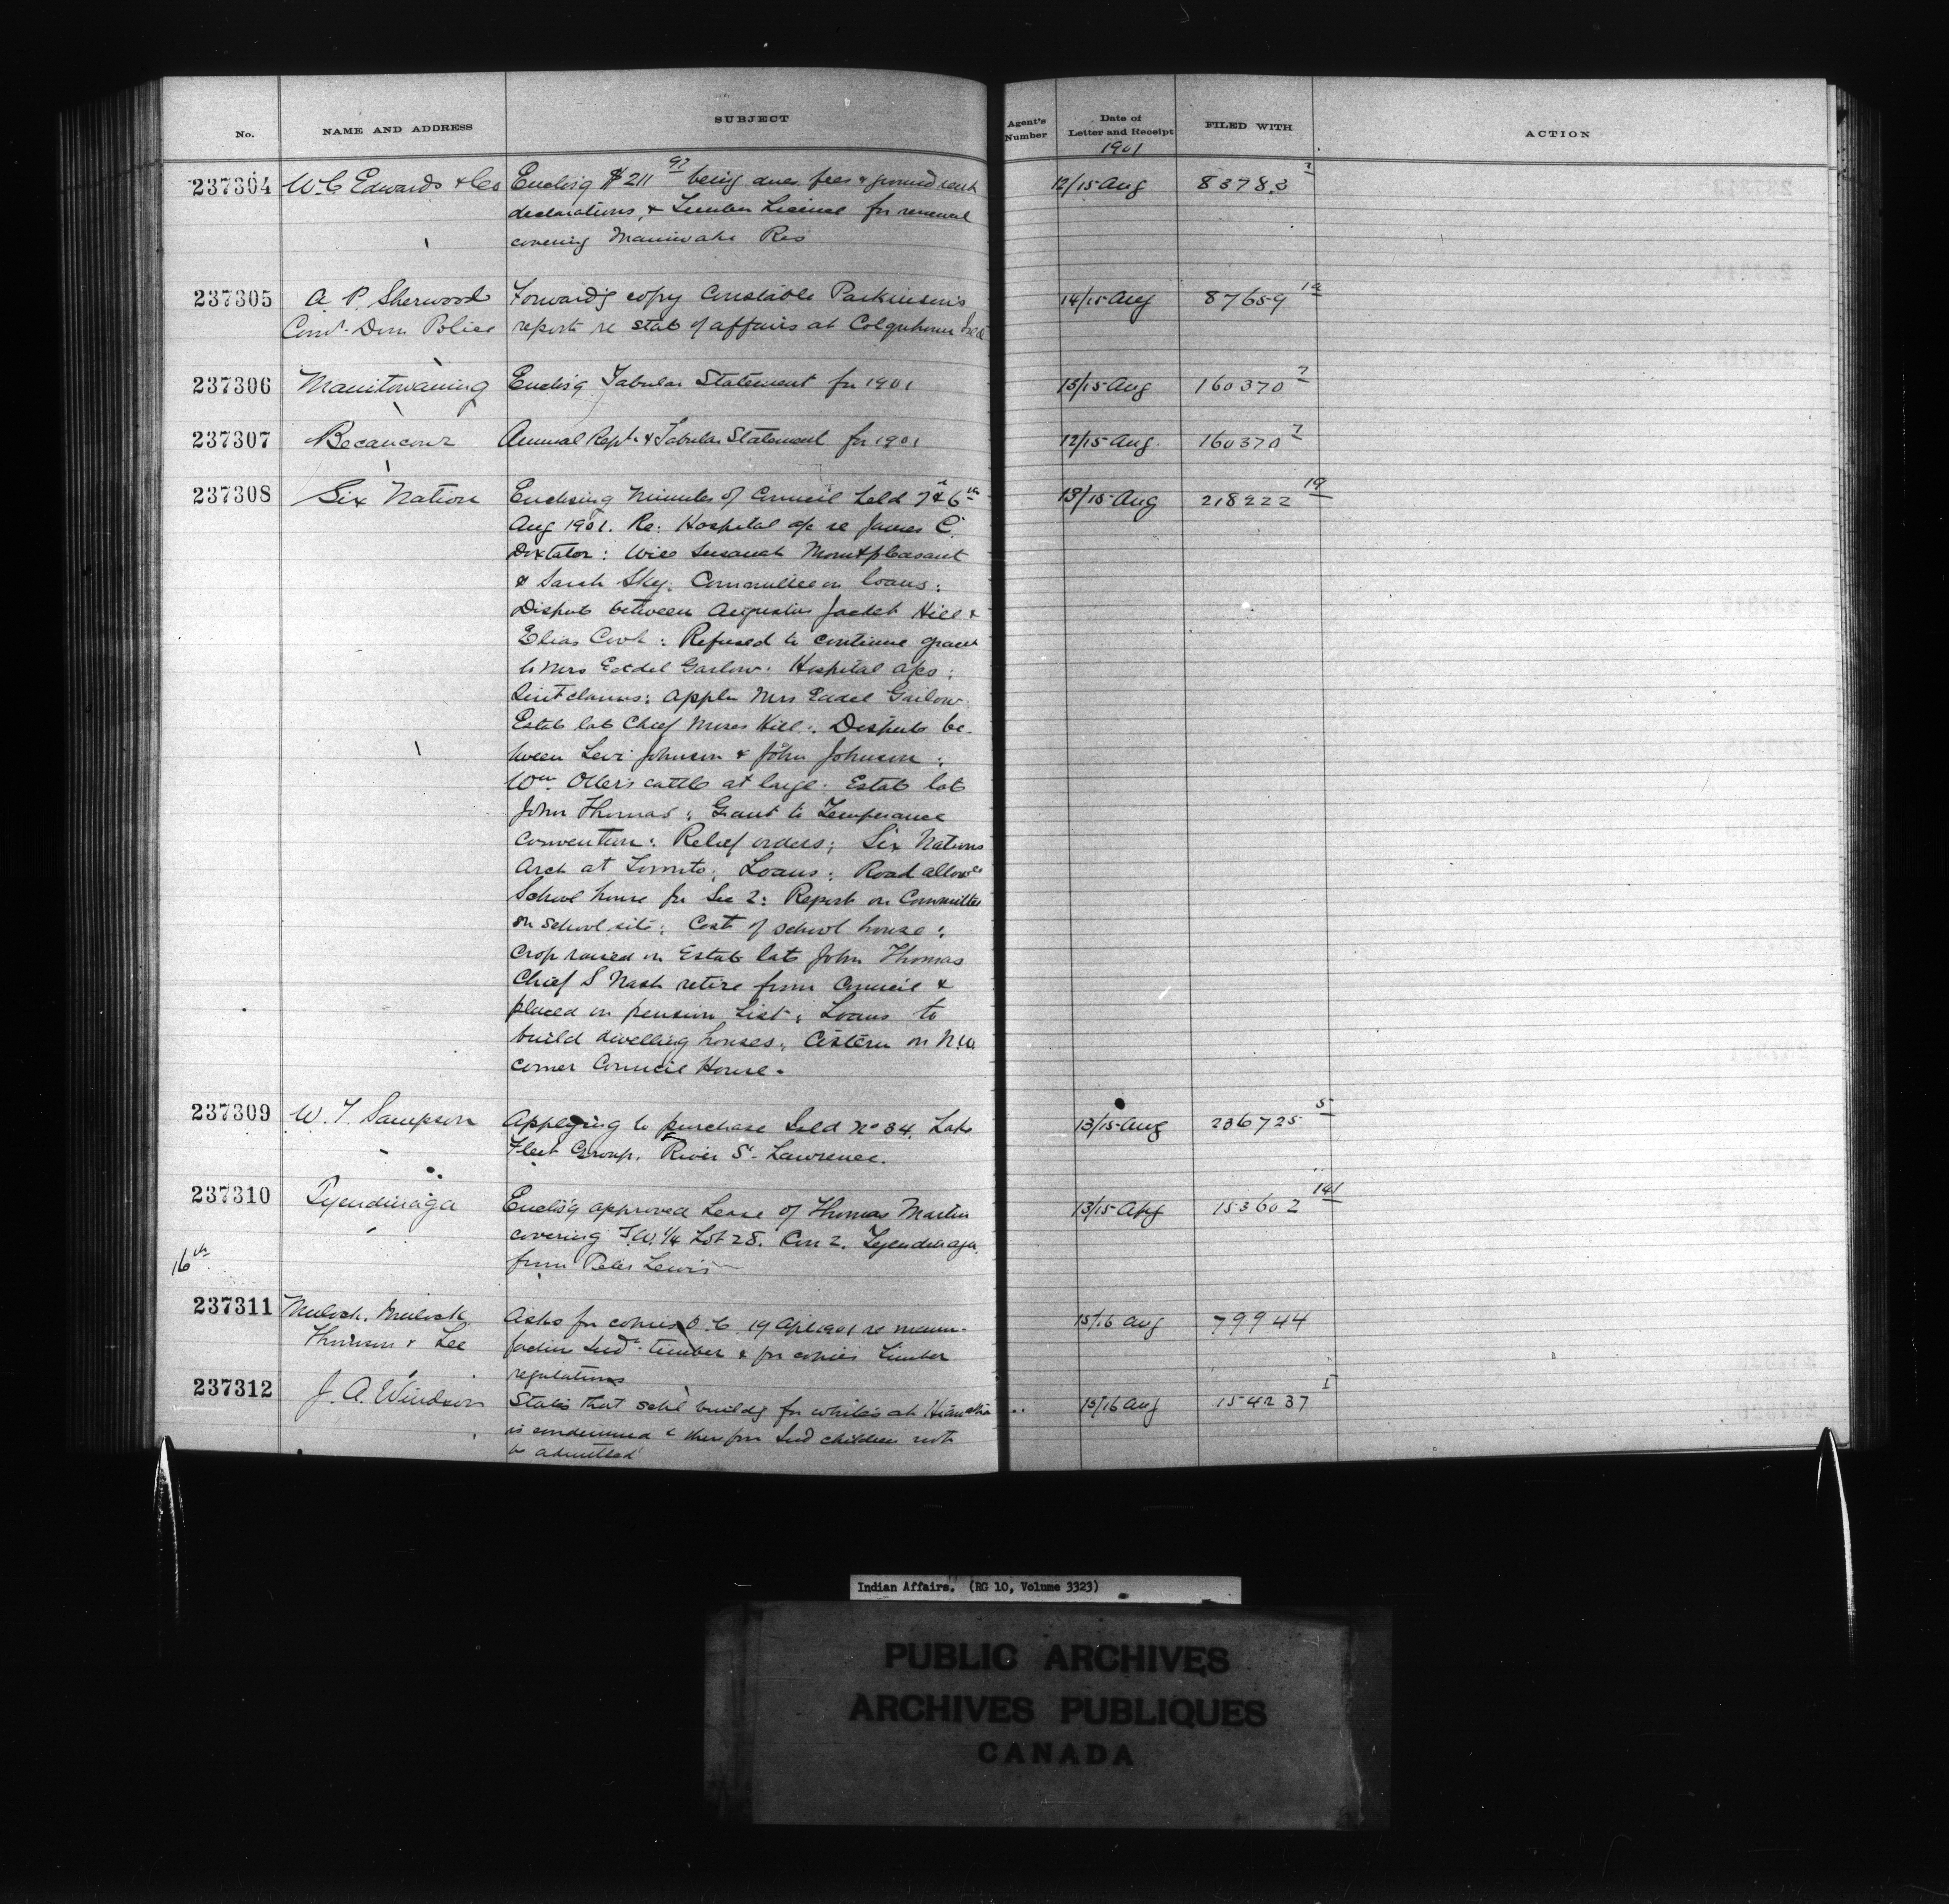 No.
NAME AND ADDRESS
SUBJECT
Agent's Number
Date of Letter and Receipt
FILED WITH
ACTION
1901
237304 W. C. Edwards & Co Enclos'g $211 97 being dues fees & ground rent 12/15 Aug 83783 2
declarations, & Timber License for renewal
covering Maniwaki Res
237305 A. P. Sherwood Forward'g copy Constable Parkinson's 14/15 Aug 87659 12
Com'r Dom Police report re state of affairs at Colquhoun Isld
237306 Manitowaning Enclos'g Tabular Statement for 1901 13/15 Aug 160370 7
237307 Becancour Annual Rept. & Tabular Statement for 1901 12/15 Aug. 160370 7
237308 Six Nation Enclosing Minutes of Council held 7th & 6th 13/15 Aug 218222 19
Aug 1901. Re: Hospital a/c re James C.
Dixtator: Will Susanah Mountpleasant
& Sarah Sky. Committee on loans:
Dispute between Augustus Jacket Hill &
Elias : Refused to continue grant
to Mrs Garlow. Hospital a/cs:
claims: Appln Mrs Garlow.
Estate late Chief Moses Hill: Dispute be-
tween Levi Johnson & John Johnson:
Wm. cattle at large. Estate late
John Thomas: Grant to Temperance
Convention: Relief orders; Six Nations
Arch at Toronto; Loans: Road allowce
School house for Sec 2: Report on Committee
on school site: Cost of school house:
Crop raised on Estate late John Thomas
Chief S Nash retire from Council &
placed on pension list: Loans to
build dwelling houses: Cistern on N.W.
corner Council House.
237309 W. T. Sampson Applying to purchase Isld No 34. Lake 13/15 Aug 236725 5
Fleet Group. River St. Lawrence.
237310 Tyendinaga Enclos'g approved Lease of Thomas Martin 13/15 Aug 153602 141
covering S.W. 1/4 Lot 28. Con 2. Tyendinaga
16th from Peter Lewis
237311 Mulock, Mulock Asks for copies O. C. 19 Apl 1901 re manu- 15/16 Aug 79944
Thomson & Lee facture Ind. timber & for copies timber
regulations
237312 J. A. Windsor States that schl build'g for whites at Hiawatha 15/16 Aug 154237 1
is condemned & therefore Ind children not
be admitted
Indian Affairs. (RG 10, Volume 3323)
PUBLIC ARCHIVES
ARCHIVES PUBLIQUES
CANADA